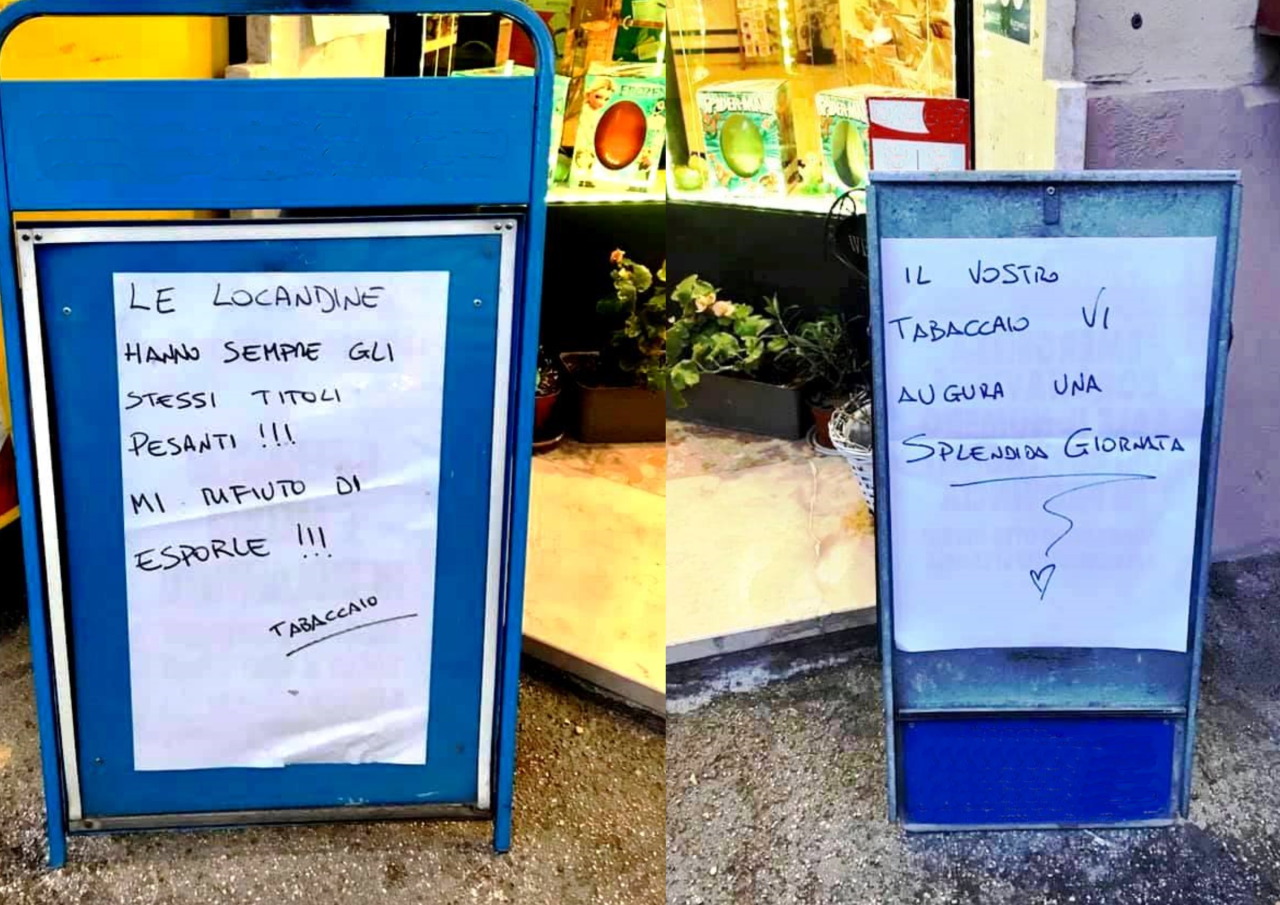 LE LOCANDINE
HANNO SEMPRE GLI
STESSI TITOLI
PESANTI !!!
MI RIFIUTO DI
ESPORLE !!!
TABACCAIO
IL VOSTRO
TABACCAIO VI
AUGURA UNA
SPLENDIDA GIORNATA
FROZEN
SPIDER-MAN
SPIDER-MAN